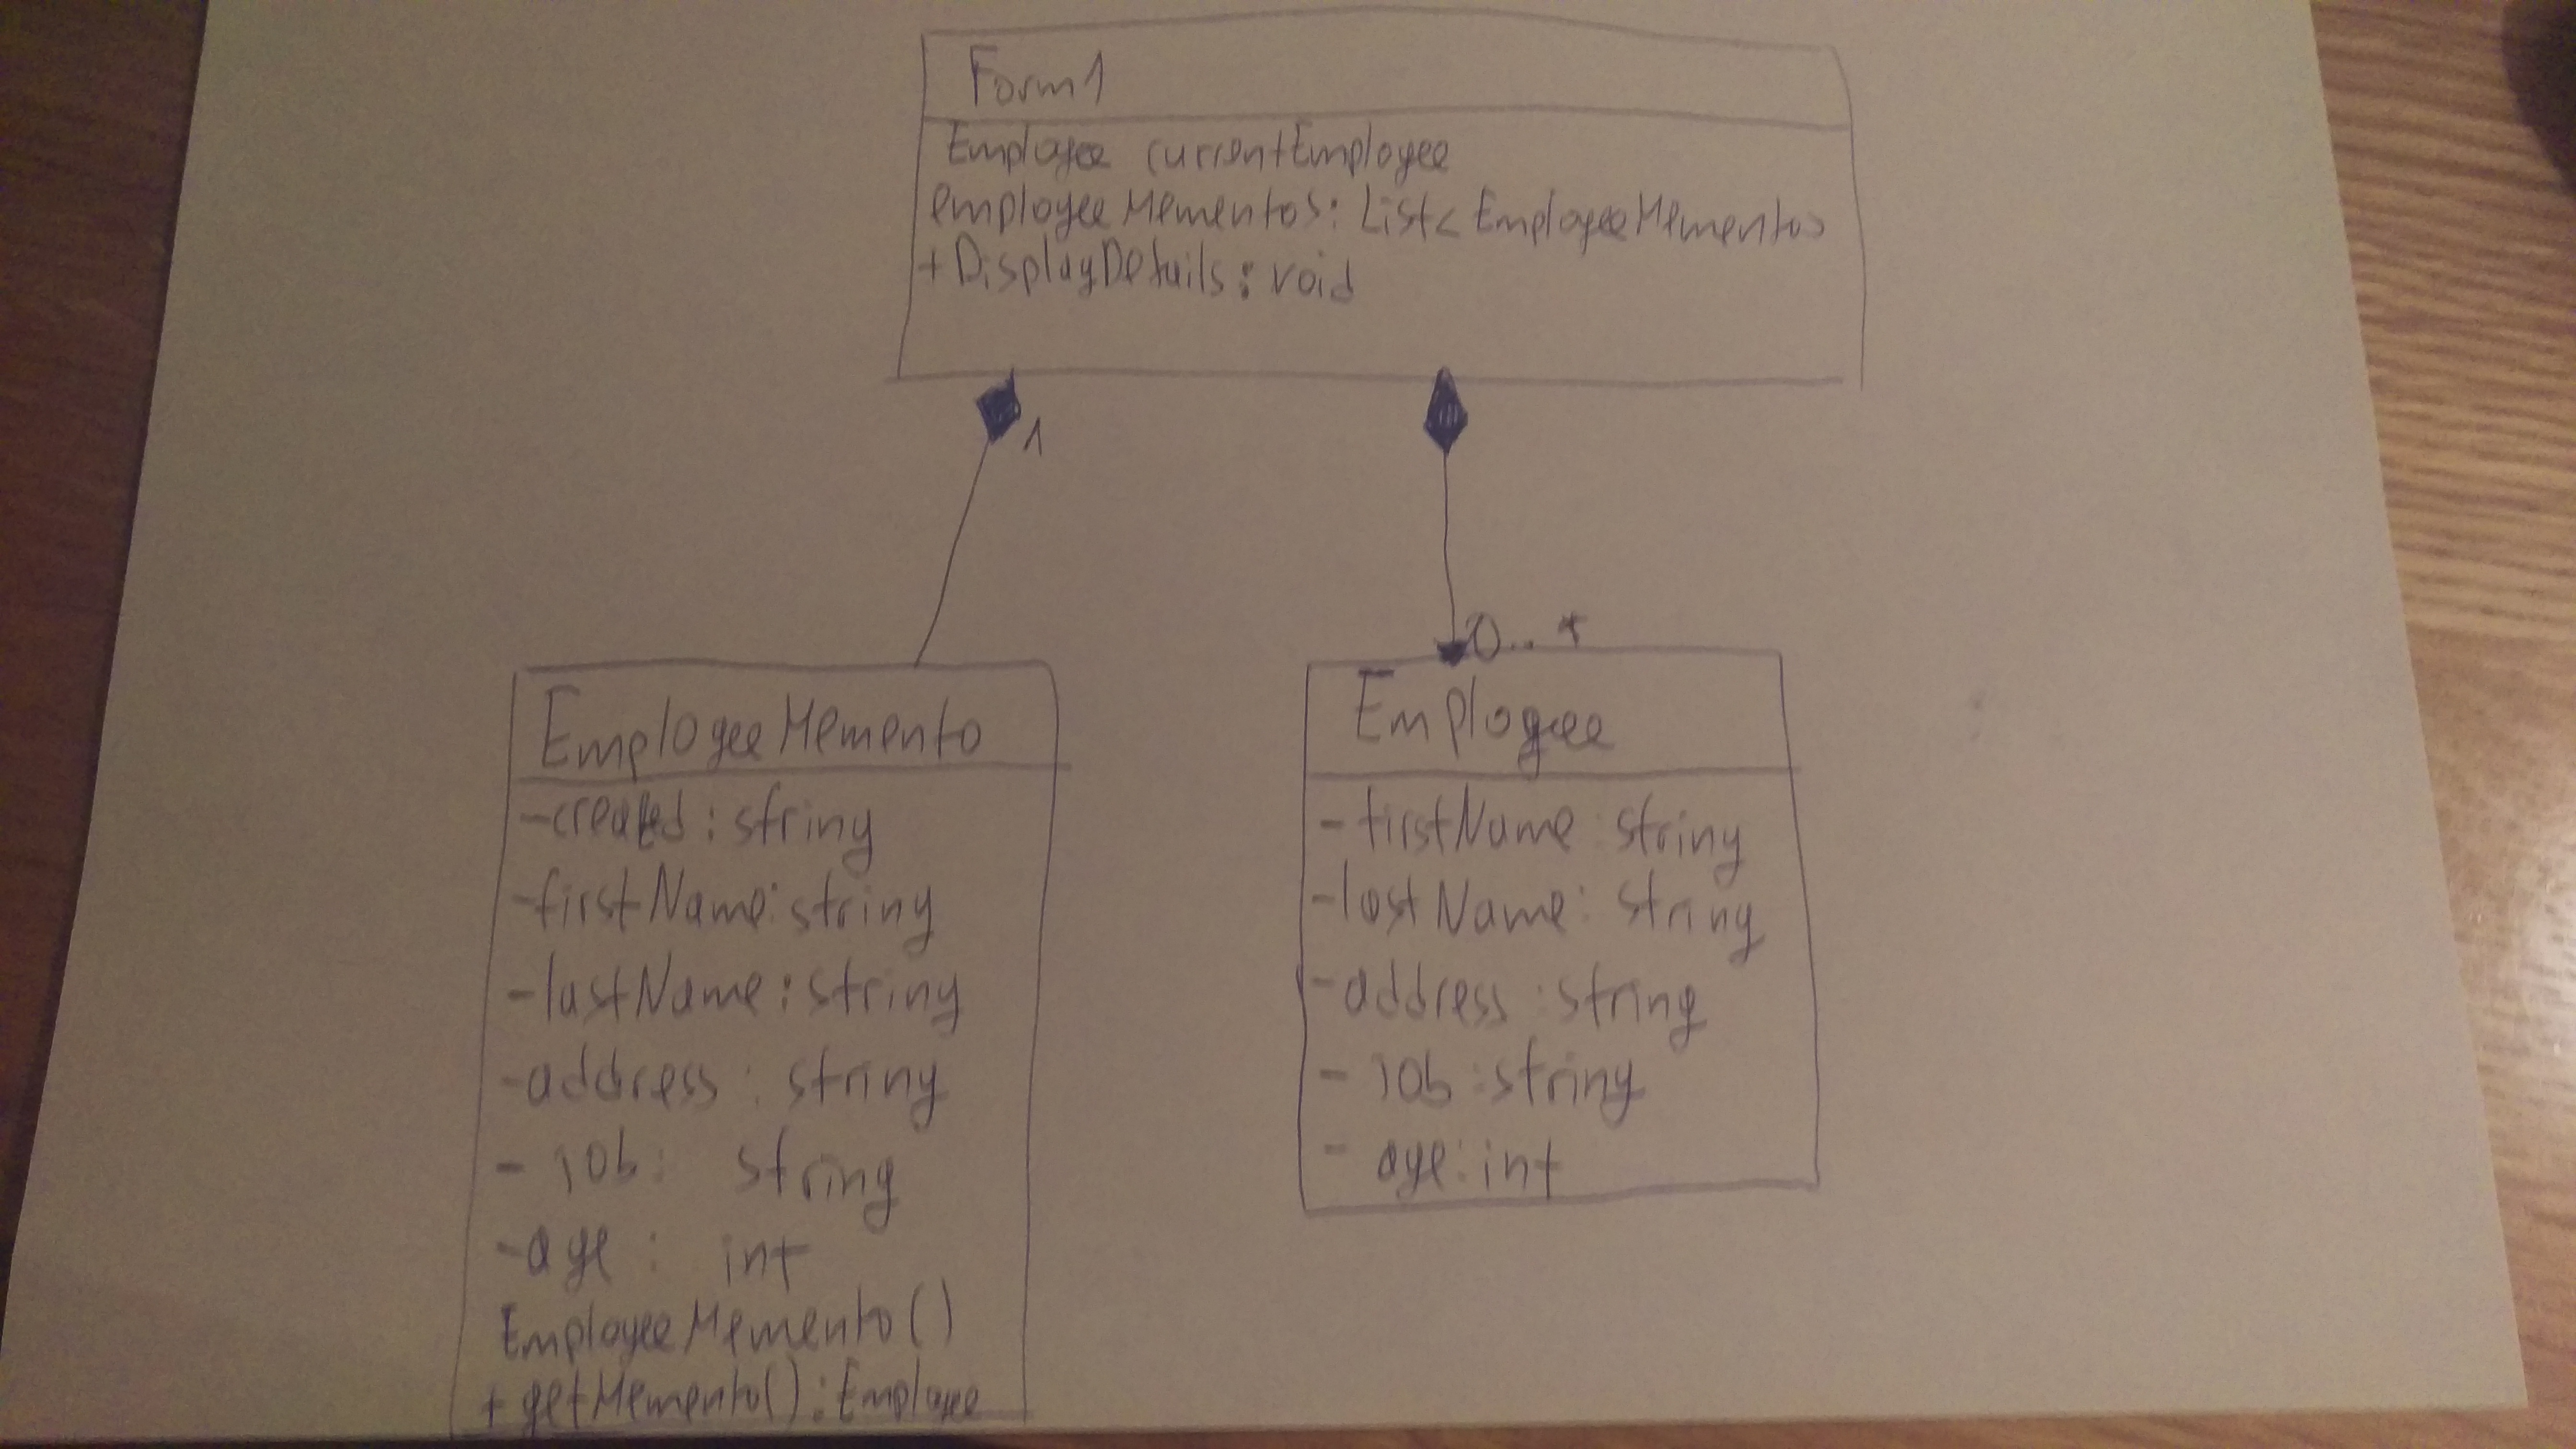 Form1
Employee currentEmployee
employeeMementos: List<EmployeeMemento>
+DisplayDetails: void
1
0..*
EmployeeMemento
-created: string
-firstName: string
-lastName: string
-address: string
- job: string
-age: int
EmployeeMemento()
+ getMemento(): Employee
Employee
- firstName: string
-lastName: string
-address: string
- job: string
- age: int